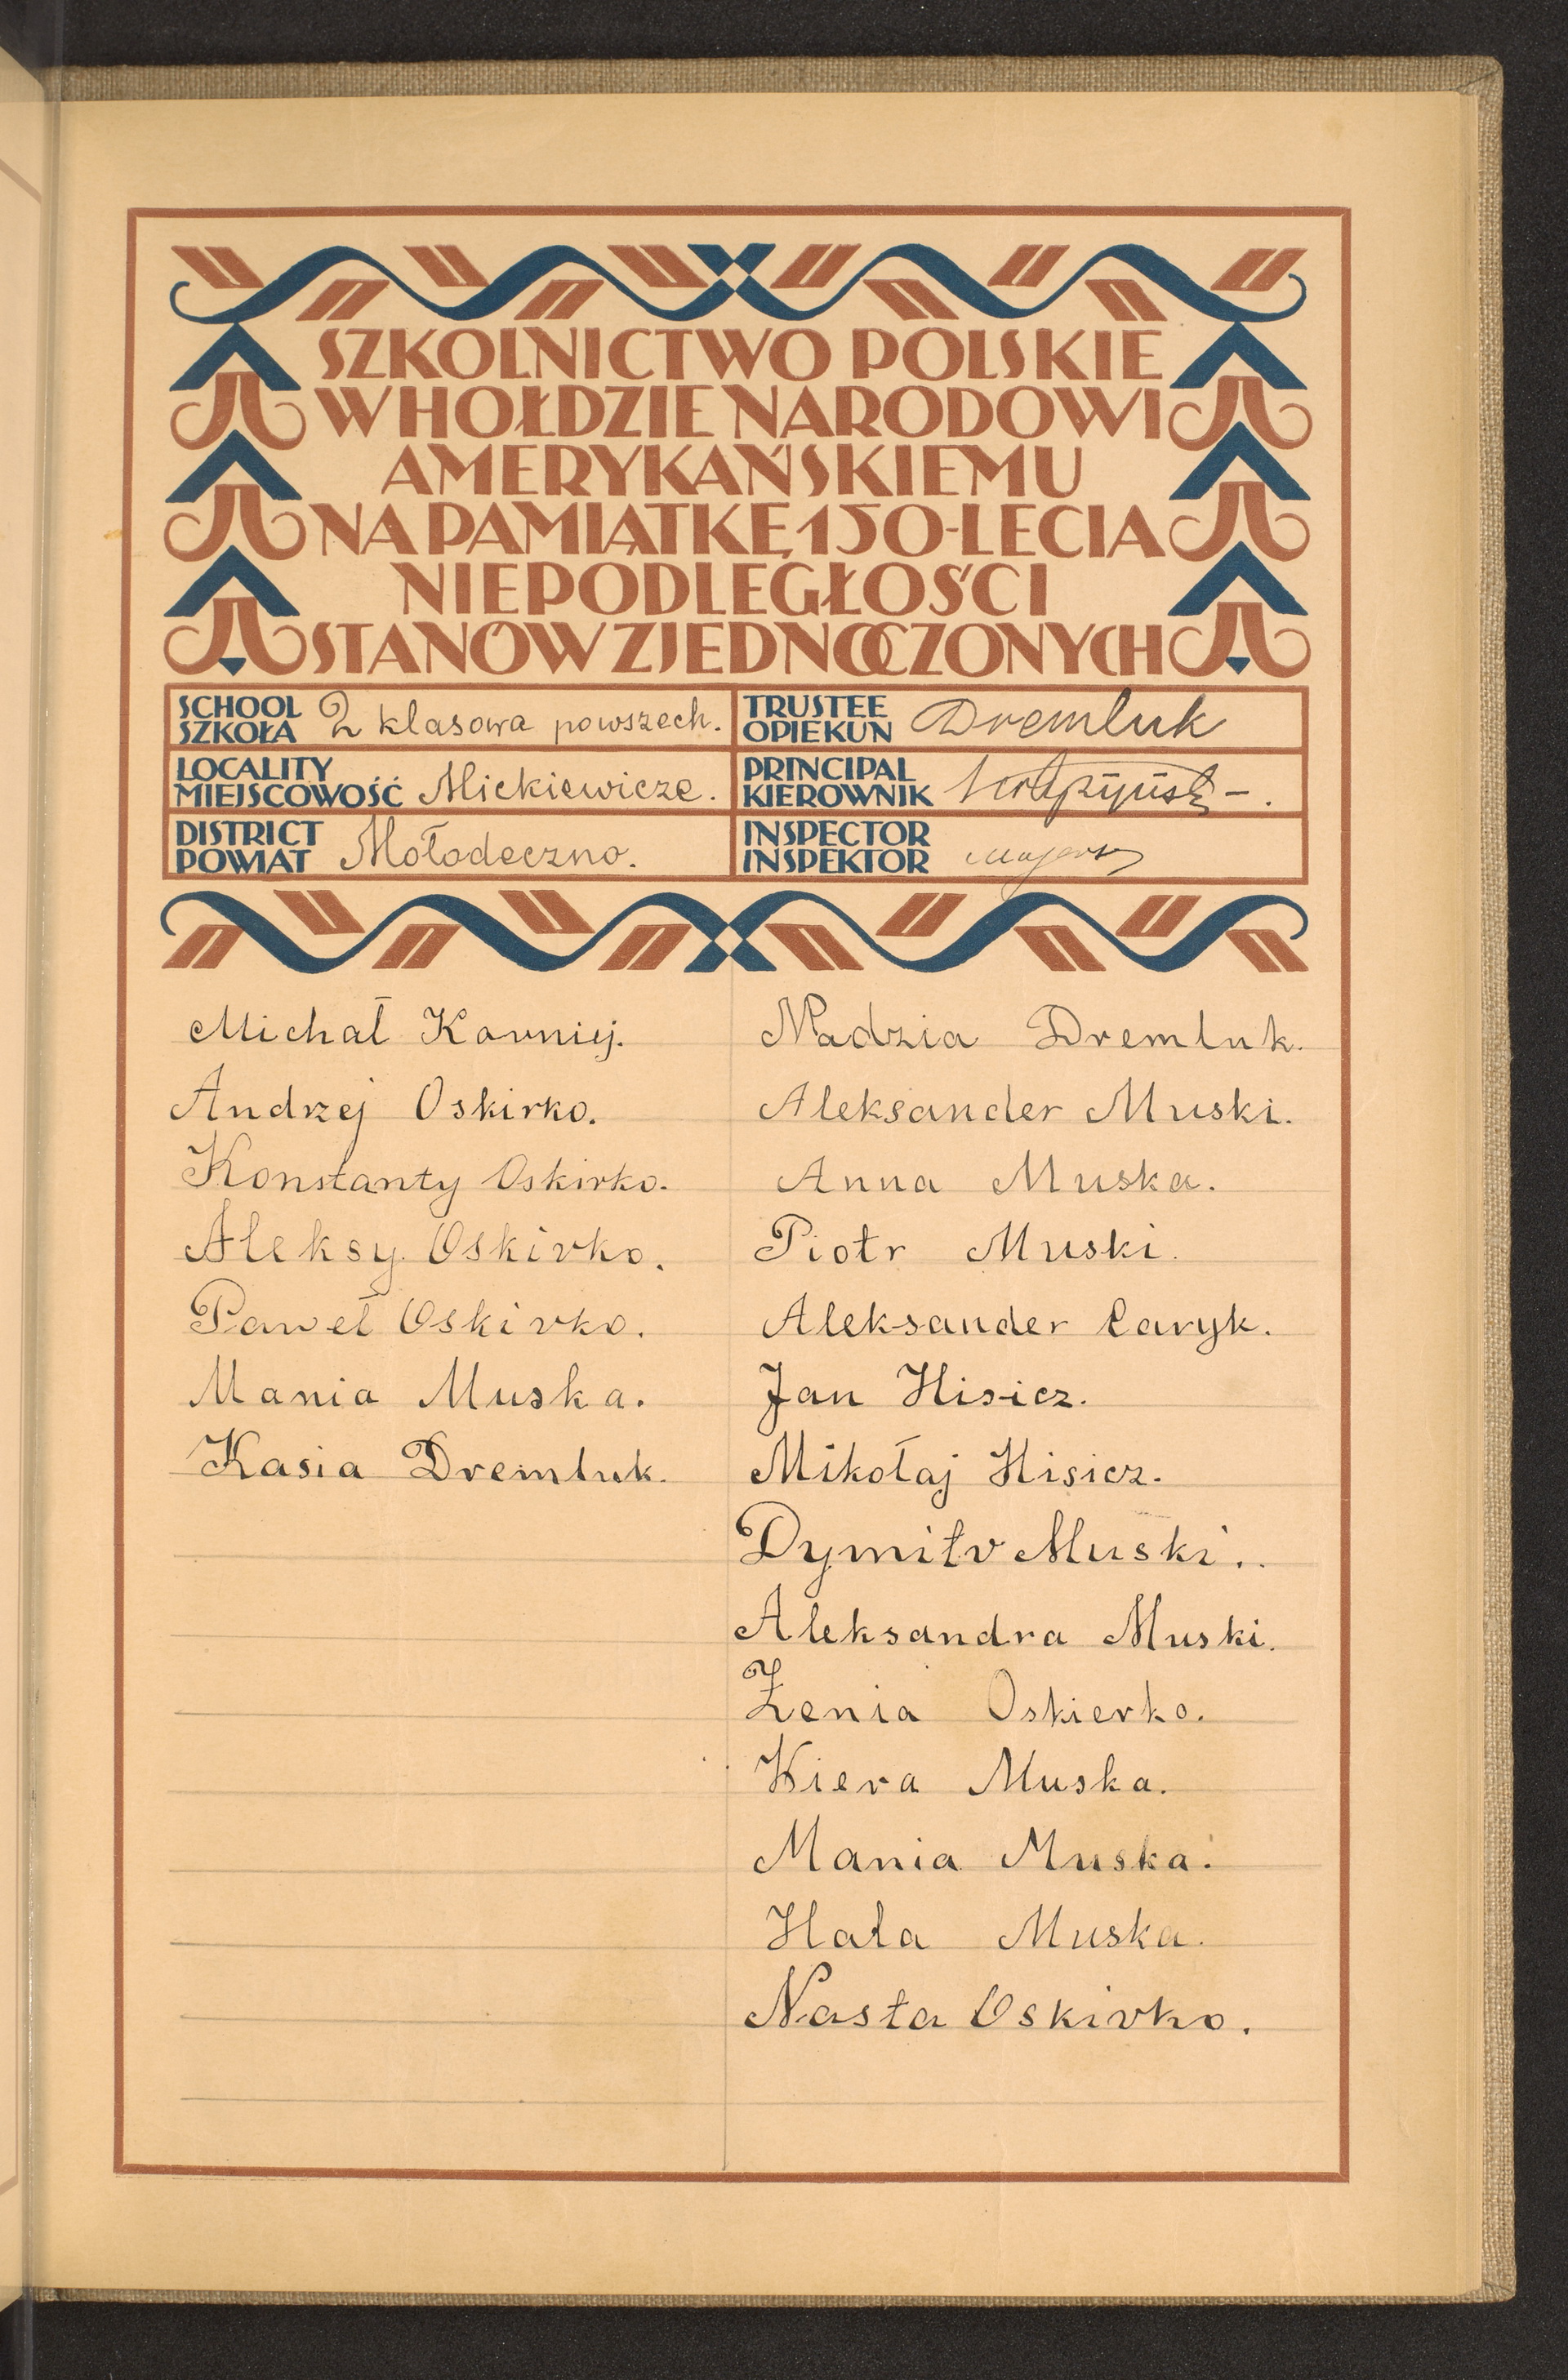 SZKOLNICTWO POLSKIE
W HOŁDZIE NARODOWI
AMERYKAŃSKIEMU
NA PAMIĄTKĘ 150-LECIA
NIEPODLEGŁOŚCI
STANÓW ZJEDNOCZONYCH
SCHOOL
SZKOŁA 2 klasowa powszech.
LOCALITY
MIEJSCOWOŚĆ Mickiewicze.
DISTRICT
POWIAT Mołodeczno.
TRUSTEE
OPIEKUN Dremluk
PRINCIPAL
KIEROWNIK
INSPECTOR
INSPEKTOR
Michał Korniej.
Andrzej Oskirko.
Konstanty Oskirko.
Aleksy Oskirko.
Paweł Oskirko.
Mania Muska.
Kasia Dremluk.
Nadzia Dremluk.
Aleksander Muski.
Anna Muska.
Piotr Muski.
Aleksander Caryk.
Jan Hisicz.
Mikołaj Hisicz.
Dymitr Muski.
Aleksandra Muski.
Żenia Oskierko.
Wiera Muska.
Mania Muska.
Hala Muska.
Nasta Oskirko.